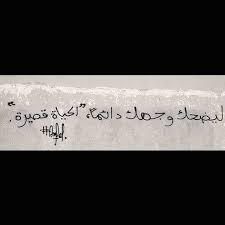 ليضحك وجهك دائماً، "الحياة قصيرة".